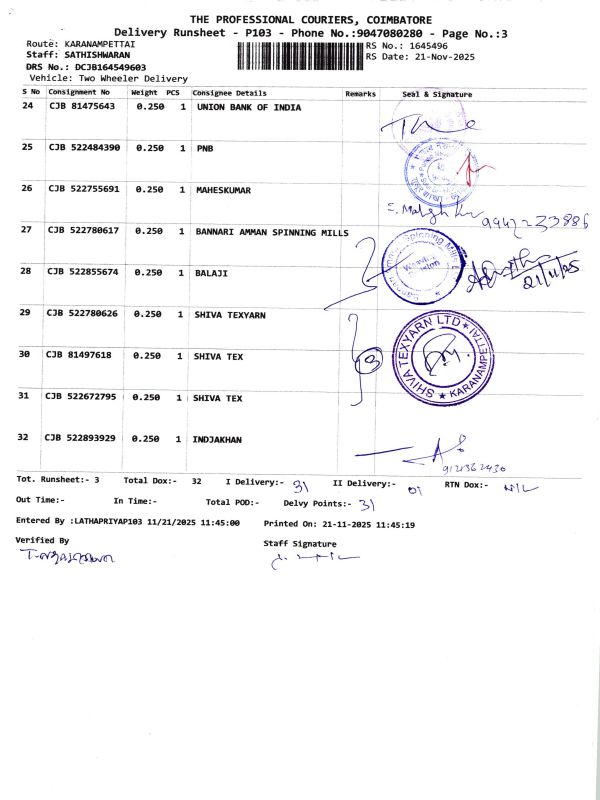 THE PROFESSIONAL COURIERS, COIMBATORE
Delivery Runsheet - P103 - Phone No.:9047080280 - Page No.:3
Route: KARANAMPETTAI RS No.: 1645496
Staff: SATHISHWARAN RS Date: 21-Nov-2025
DRS No.: DCJB164549603
Vehicle: Two Wheeler Delivery
S No Consignment No Weight PCS Consignee Details Remarks Seal & Signature
24 CJB 81475643 0.250 1 UNION BANK OF INDIA
25 CJB 522484390 0.250 1 PNB
26 CJB 522755691 0.250 1 MAHESKUMAR
9942233886
27 CJB 522780617 0.250 1 BANNARI AMMAN SPINNING MILLS
28 CJB 522855674 0.250 1 BALAJI
21/11/25
29 CJB 522780626 0.250 1 SHIVA TEXYARN
SHIVA TEXYARN LTD ★ KARANAMPETTAI ★
30 CJB 81497618 0.250 1 SHIVA TEX
3
31 CJB 522672795 0.250 1 SHIVA TEX
32 CJB 522893929 0.250 1 INDJAKHAN
Tot. Runsheet:- 3 Total Dox:- 32 I Delivery:- 31 II Delivery:- 01 RTN Dox:- NIL
Out Time:- In Time:- Total POD:- Delvy Points:- 31
Entered By :LATHAPRIYAP103 11/21/2025 11:45:00 Printed On: 21-11-2025 11:45:19
Verified By
Staff Signature